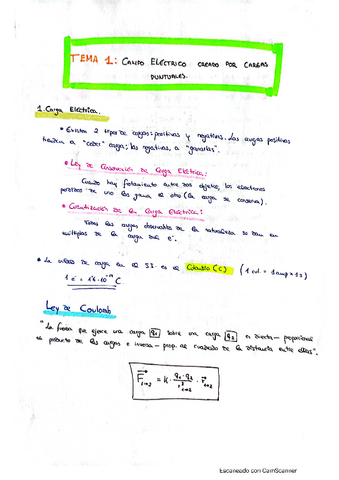 TEMA 1: CAMPO ELÉCTRICO CREADO POR CARGAS
PUNTUALES.
1. Carga Eléctrica.
• Existen 2 tipos de cargas: positivas y negativas. Las cargas positivas
tienden a "ceder" carga; las negativas, a "ganarlas".
• Ley de Conservación de Carga Eléctrica:
Cuando hay frotamiento entre dos objetos, los electrones
perdidos de uno los gana el otro (la carga se conserva).
• Cuantización de la Carga Eléctrica:
Todas las cargas observables de la naturaleza se dan en
múltiplos de la carga del e⁻.
• La unidad de carga en el S.I. es el Culombio (C) (1 cul = 1 amp × 1 s)
1 e⁻ = 1'6·10⁻¹⁹ C.
Ley de Coulomb
"La fuerza que ejerce una carga q₁ sobre una carga q₂ es directa- proporcional
al producto de las cargas e inversa- prop. al cuadrado de la distancia entre ellas".
F₁→₂ = K · q₁ · q₂ / r² · r₁→₂
Escaneado con CamScanner